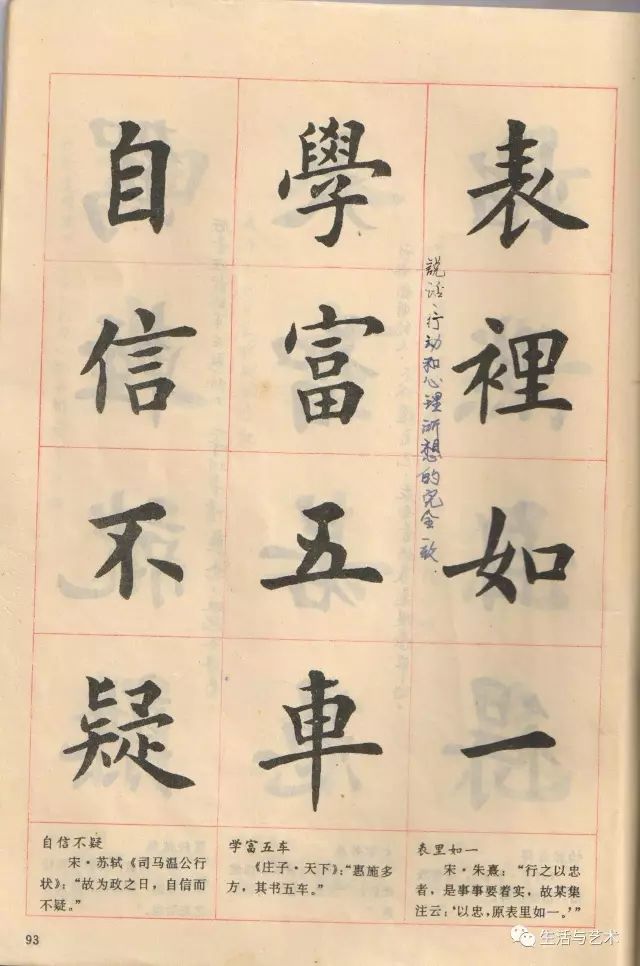 表裡如一
説话、行动和心理所想的完全一致
學富五車
自信不疑
自信不疑
宋·苏轼《司马温公行
状》：“故为政之日，自信而
不疑。”
学富五车
《庄子·天下》：“惠施多
方，其书五车。”
表里如一
宋·朱熹：“行之以忠
者，是事事要着实，故某集
注云：‘以忠，原表里如一。’”
93
生活与艺术